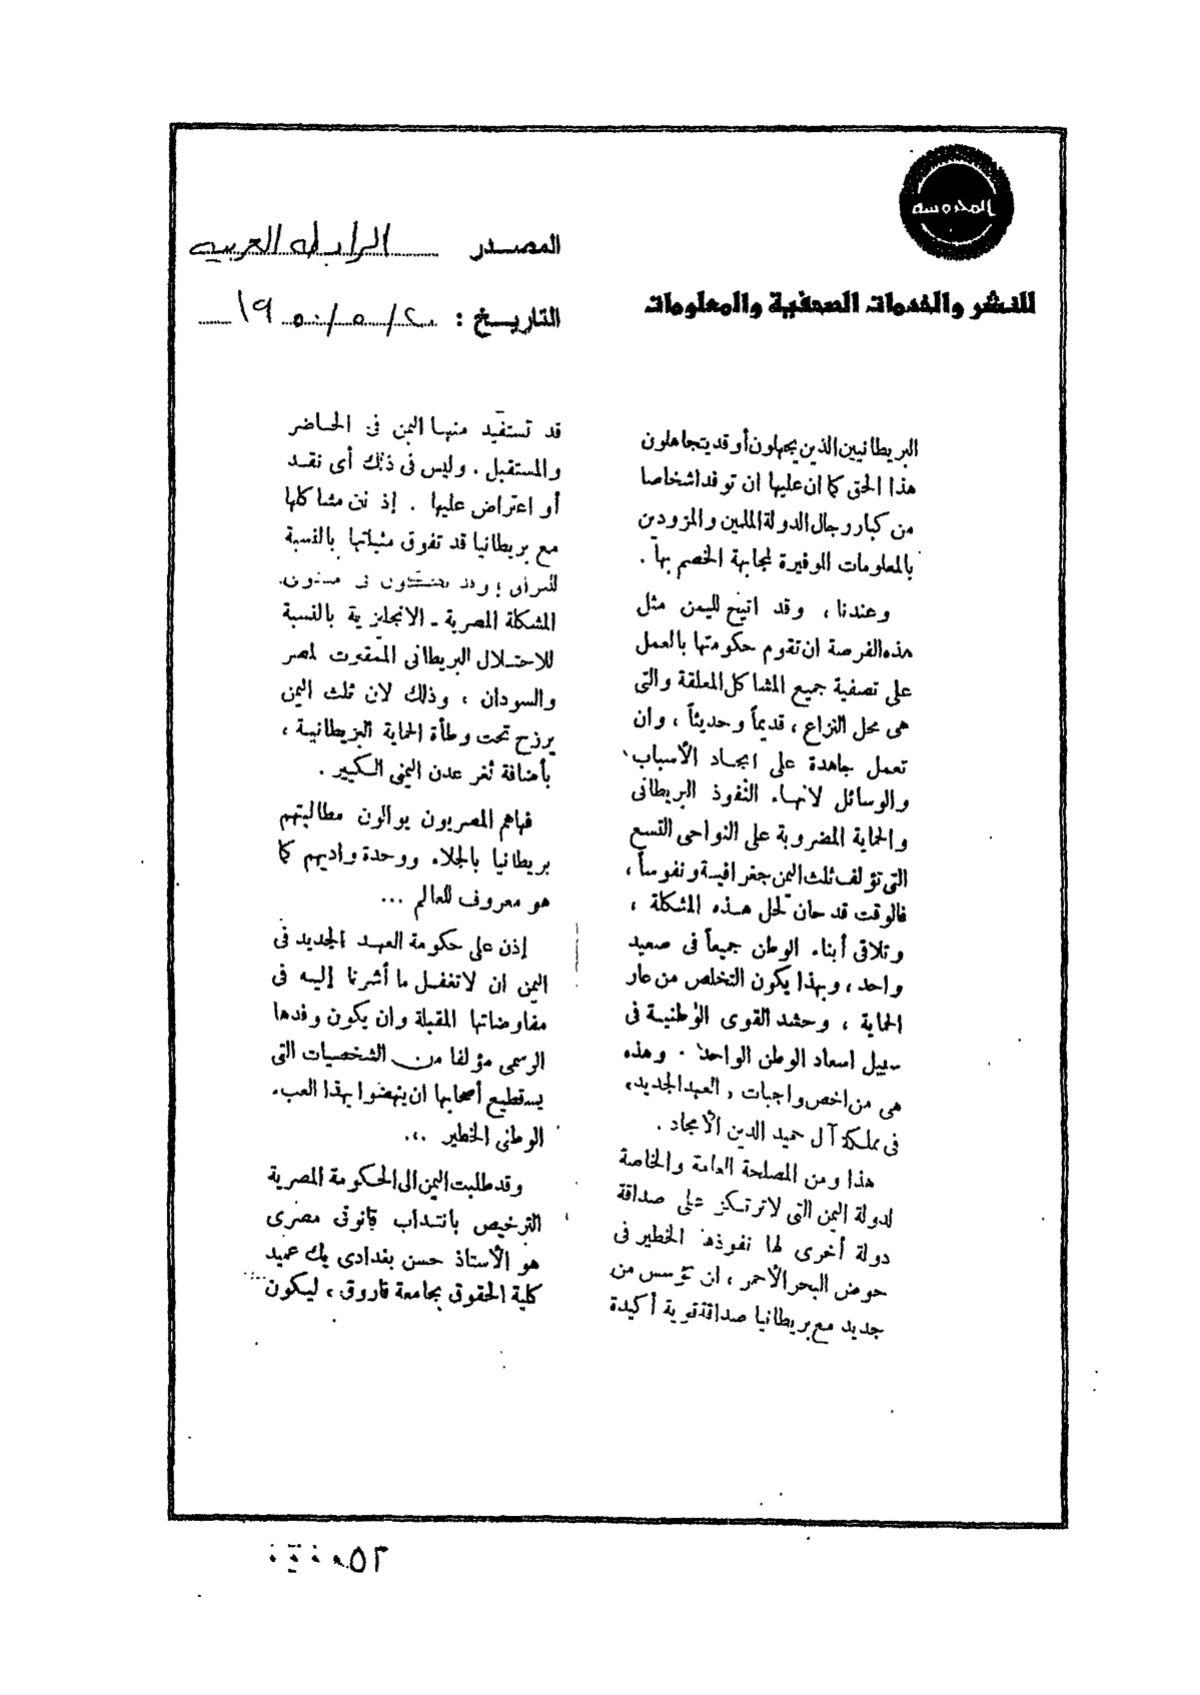 المحروسة
للنشر والخدمات الصحفية والمعلومات
المصدر الرابطة العربية
التاريخ : ٢٠/٥/١٩٥٠
البريطانيين الذين يجهلون أو قد يتجاهلون
هذا الحق كما ان عليها ان توفد اشخاصا
من كبار رجال الدولة الملمين والمزودين
بالمعلومات الوفيرة لمجابهة الخصم بها .
وعندنا ، وقد اتيح لليمن مثل
هذه الفرصة ان تقوم حكومتها بالعمل
على تصفية جميع المشاكل المعلقة والتى
هى محل النزاع ، قديماً وحديثاً ، وان
تعمل جاهدة على ايجاد الأسباب
والوسائل لانهاء النفوذ البريطانى
والحماية المضروبة على النواحى التسع
التى تؤلف ثلث اليمن جغرافيـة ونفوساً ،
فالوقت قد حان لحل هـذه المشكلة ،
وتلاقى أبناء الوطن جميعاً فى صعيد
واحد ، وبهذا يكون التخلص من عار
الحماية ، وحشد القوى الوطنيـة فى
سبيل اسعاد الوطن الواحد . وهذه
هى من اخص واجبات « العهد الجديد »
فى مملكة آل حميد الدين الأمجاد .
هذا ومن المصلحة العامة والخاصة
لدولة اليمن التى لا ترتكز على صداقة
دولة أخرى لها نفوذها الخطير فى
حوض البحر الأحمر ، ان تؤسس من
جديد مع بريطانيا صداقة قوية أكيدة
قد تستفيد منهـا اليمن فى الحـاضر
والمستقبل . وليس فى ذلك أى نقـد
أو اعتراض عليها . إذ نن مشاكلها
مع بريطانيا قد تفوق مثيلتها بالنسبة
المشكلة المصرية ـ الانجليزية بالنسبة
للاحتـلال البريطانى الممقوت لمصر
والسودان ، وذلك لان ثلث اليمن
يرزح تحت وطأة الحماية البريطانيـة ،
بأضافة ثغر عدن اليمنى الـكبير .
فهاهم المصريون يوالون مطالبتهم
بريطانيا بالجلاء ووحدة واديهم كما
هو معروف للعالم ...
إذن على حكومة العهـد الجديد فى
اليمن ان لاتغفـل ما أشرنا إليـه فى
مفاوضاتها المقبلة وان يكون وفدها
الرسمى مؤلفا من الشخصيات التى
يستطيع أصحابها ان ينهضوا بهذا العبء
الوطنى الخطير ...
وقد طلبت اليمن الى الحكومة المصرية
الترخيص بانتداب قانونى مصرى
هو الأستاذ حسن بغدادى بك عميد
كلية الحقوق بجامعة فاروق ، ليكون